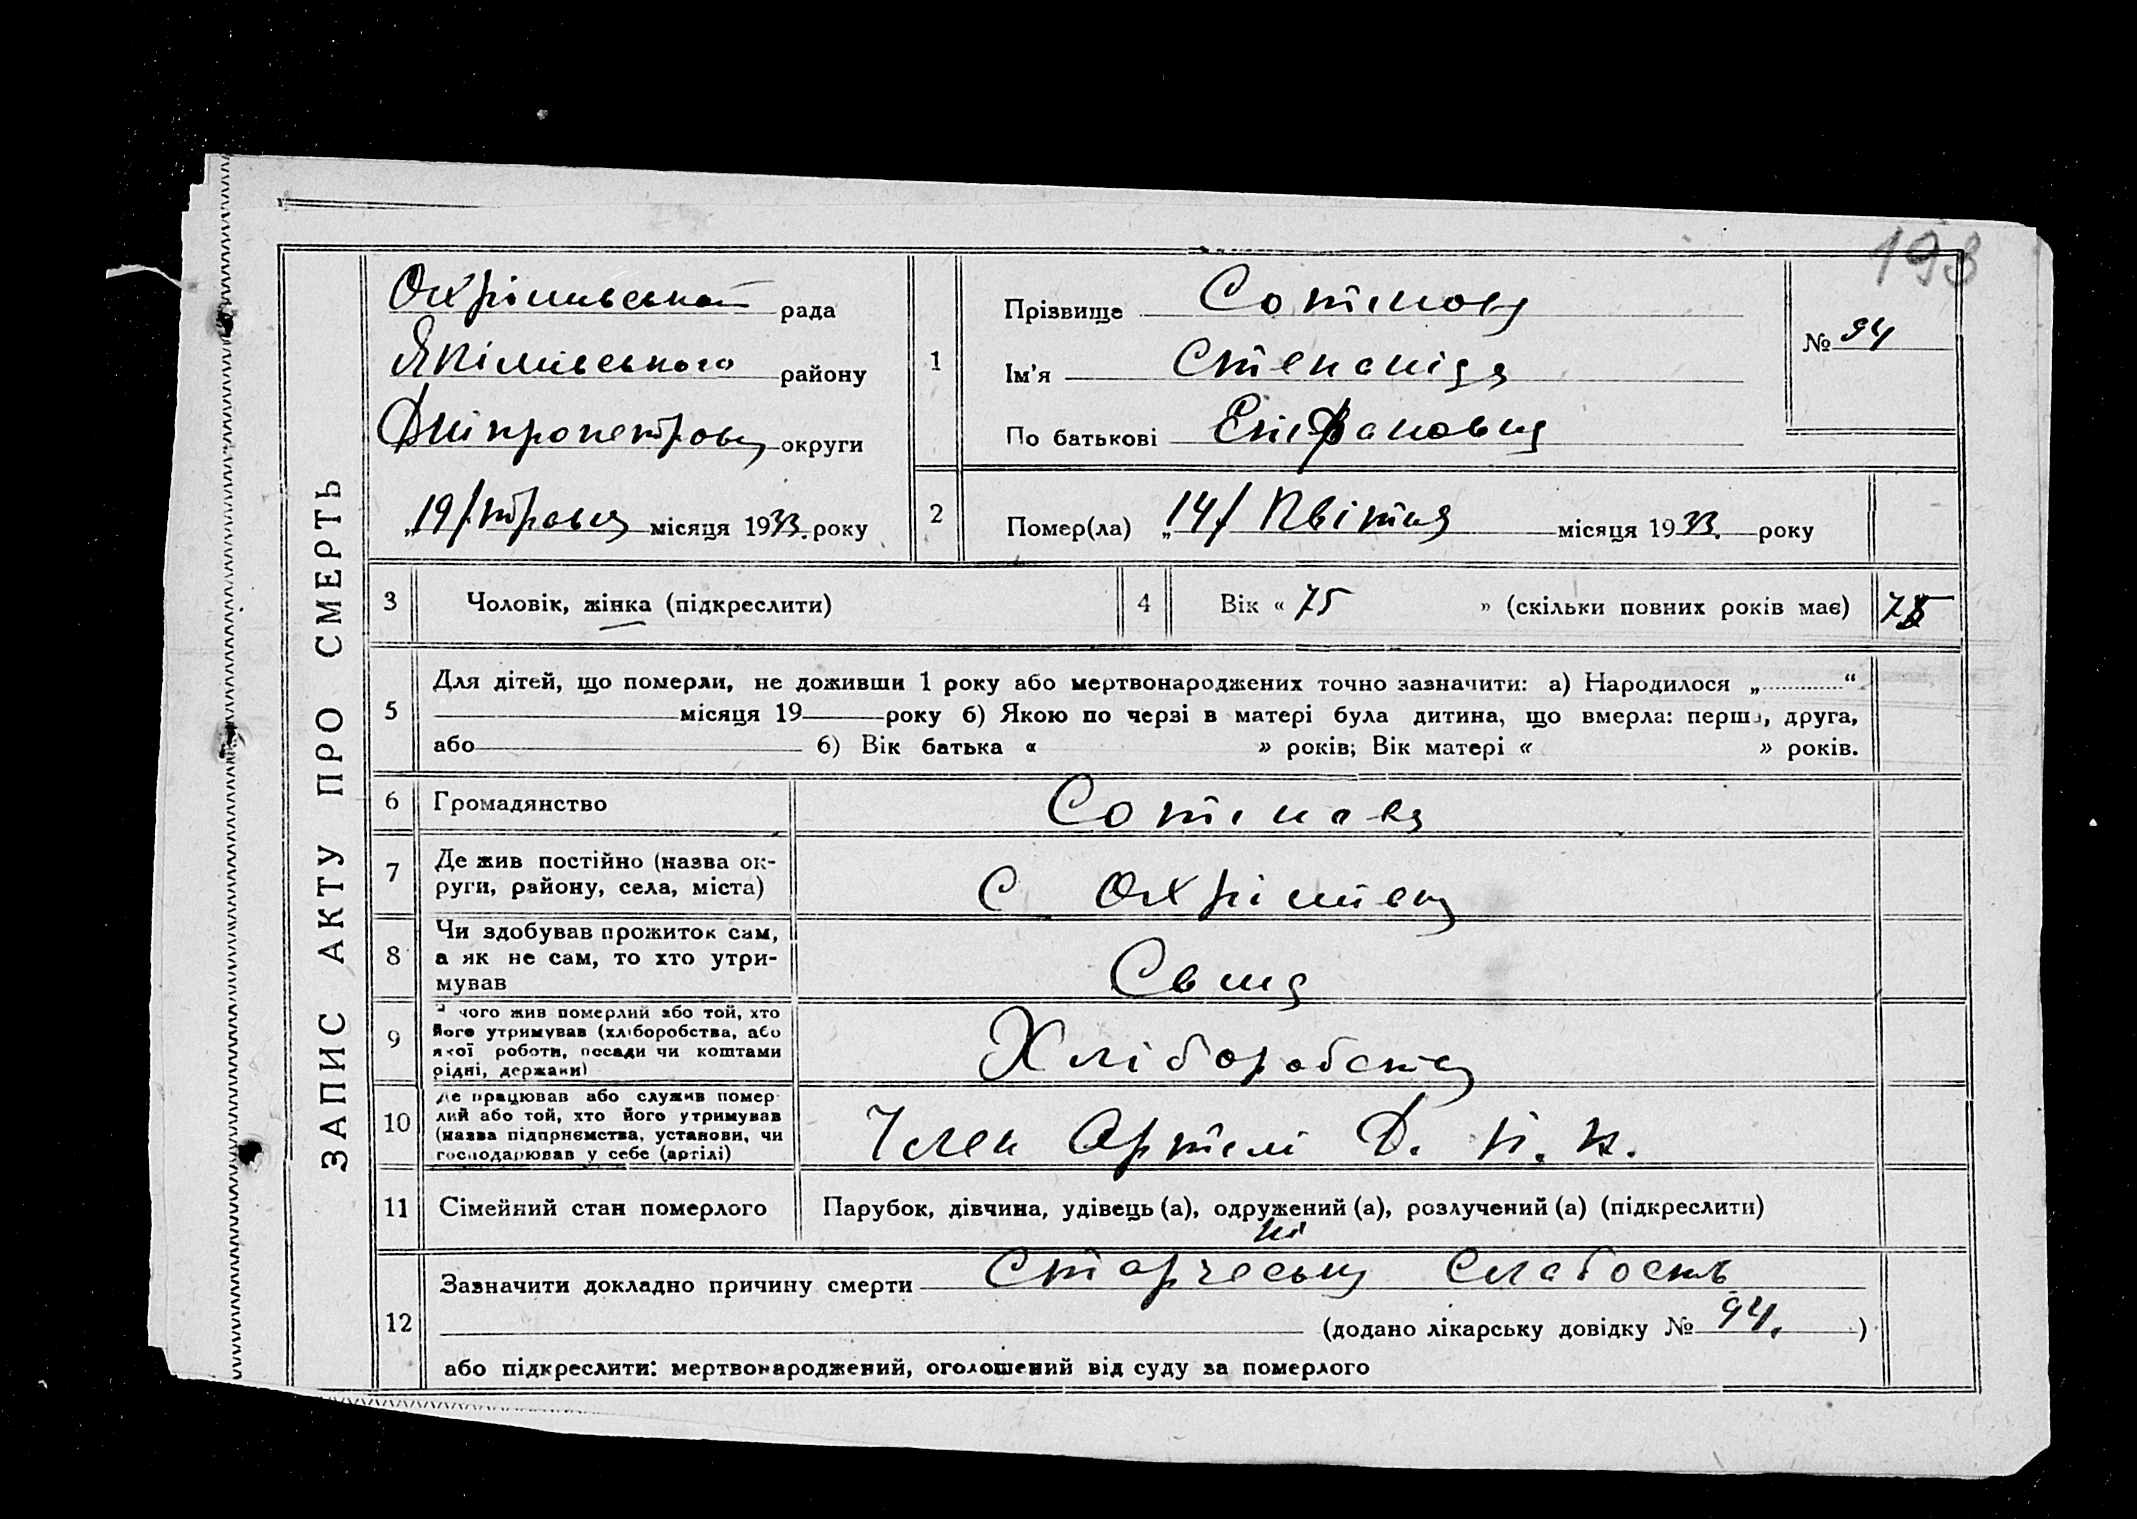 193
ЗАПИС АКТУ ПРО СМЕРТЬ
Охрімивської рада
Якімівського району
Дніпропетровц округи
„19/травня місяця 1933. року
1
Прізвище
Ім’я Степаніда
По батькові Епіфановна
№ 94
2
Помер(ла) „14/ Квітня місяця 1933. року
3 Чоловік, жінка (підкреслити)
4 Вік « 75 » (скільки повних років має) 75
5 Для дітей, що померли, не доживши 1 року або мертвонароджених точно зазначити: а) Народилося „ “
місяця 19 року б) Якою по черзі в матері була дитина, що вмерла: перша, друга,
або б) Вік батька « » років; Вік матері « » років.
6 Громадянство
7 Де жив постійно (назва ок-
руги, району, села, міста)
С
8 Чи здобував прожиток сам,
а як не сам, то хто утри-
мував
9 З чого жив померлий або той, хто
його утримував (хліборобства, або
якої роботи, посади чи коштами
рідні, держави)
Хліборобство
10 Де працював або служив помер-
лий або той, хто його утримував
(назва підприємства, установи, чи
господарював у себе (артілі)
Член Артелі Д. Н. К.
11 Сімейний стан померлого Парубок, дівчина, удівець (а), одружений (а), розлучений (а) (підкреслити)
12 Зазначити докладно причину смерти Старческая Слабость
(додано лікарську довідку № 94. )
або підкреслити: мертвонароджений, оголошений від суду за померлого